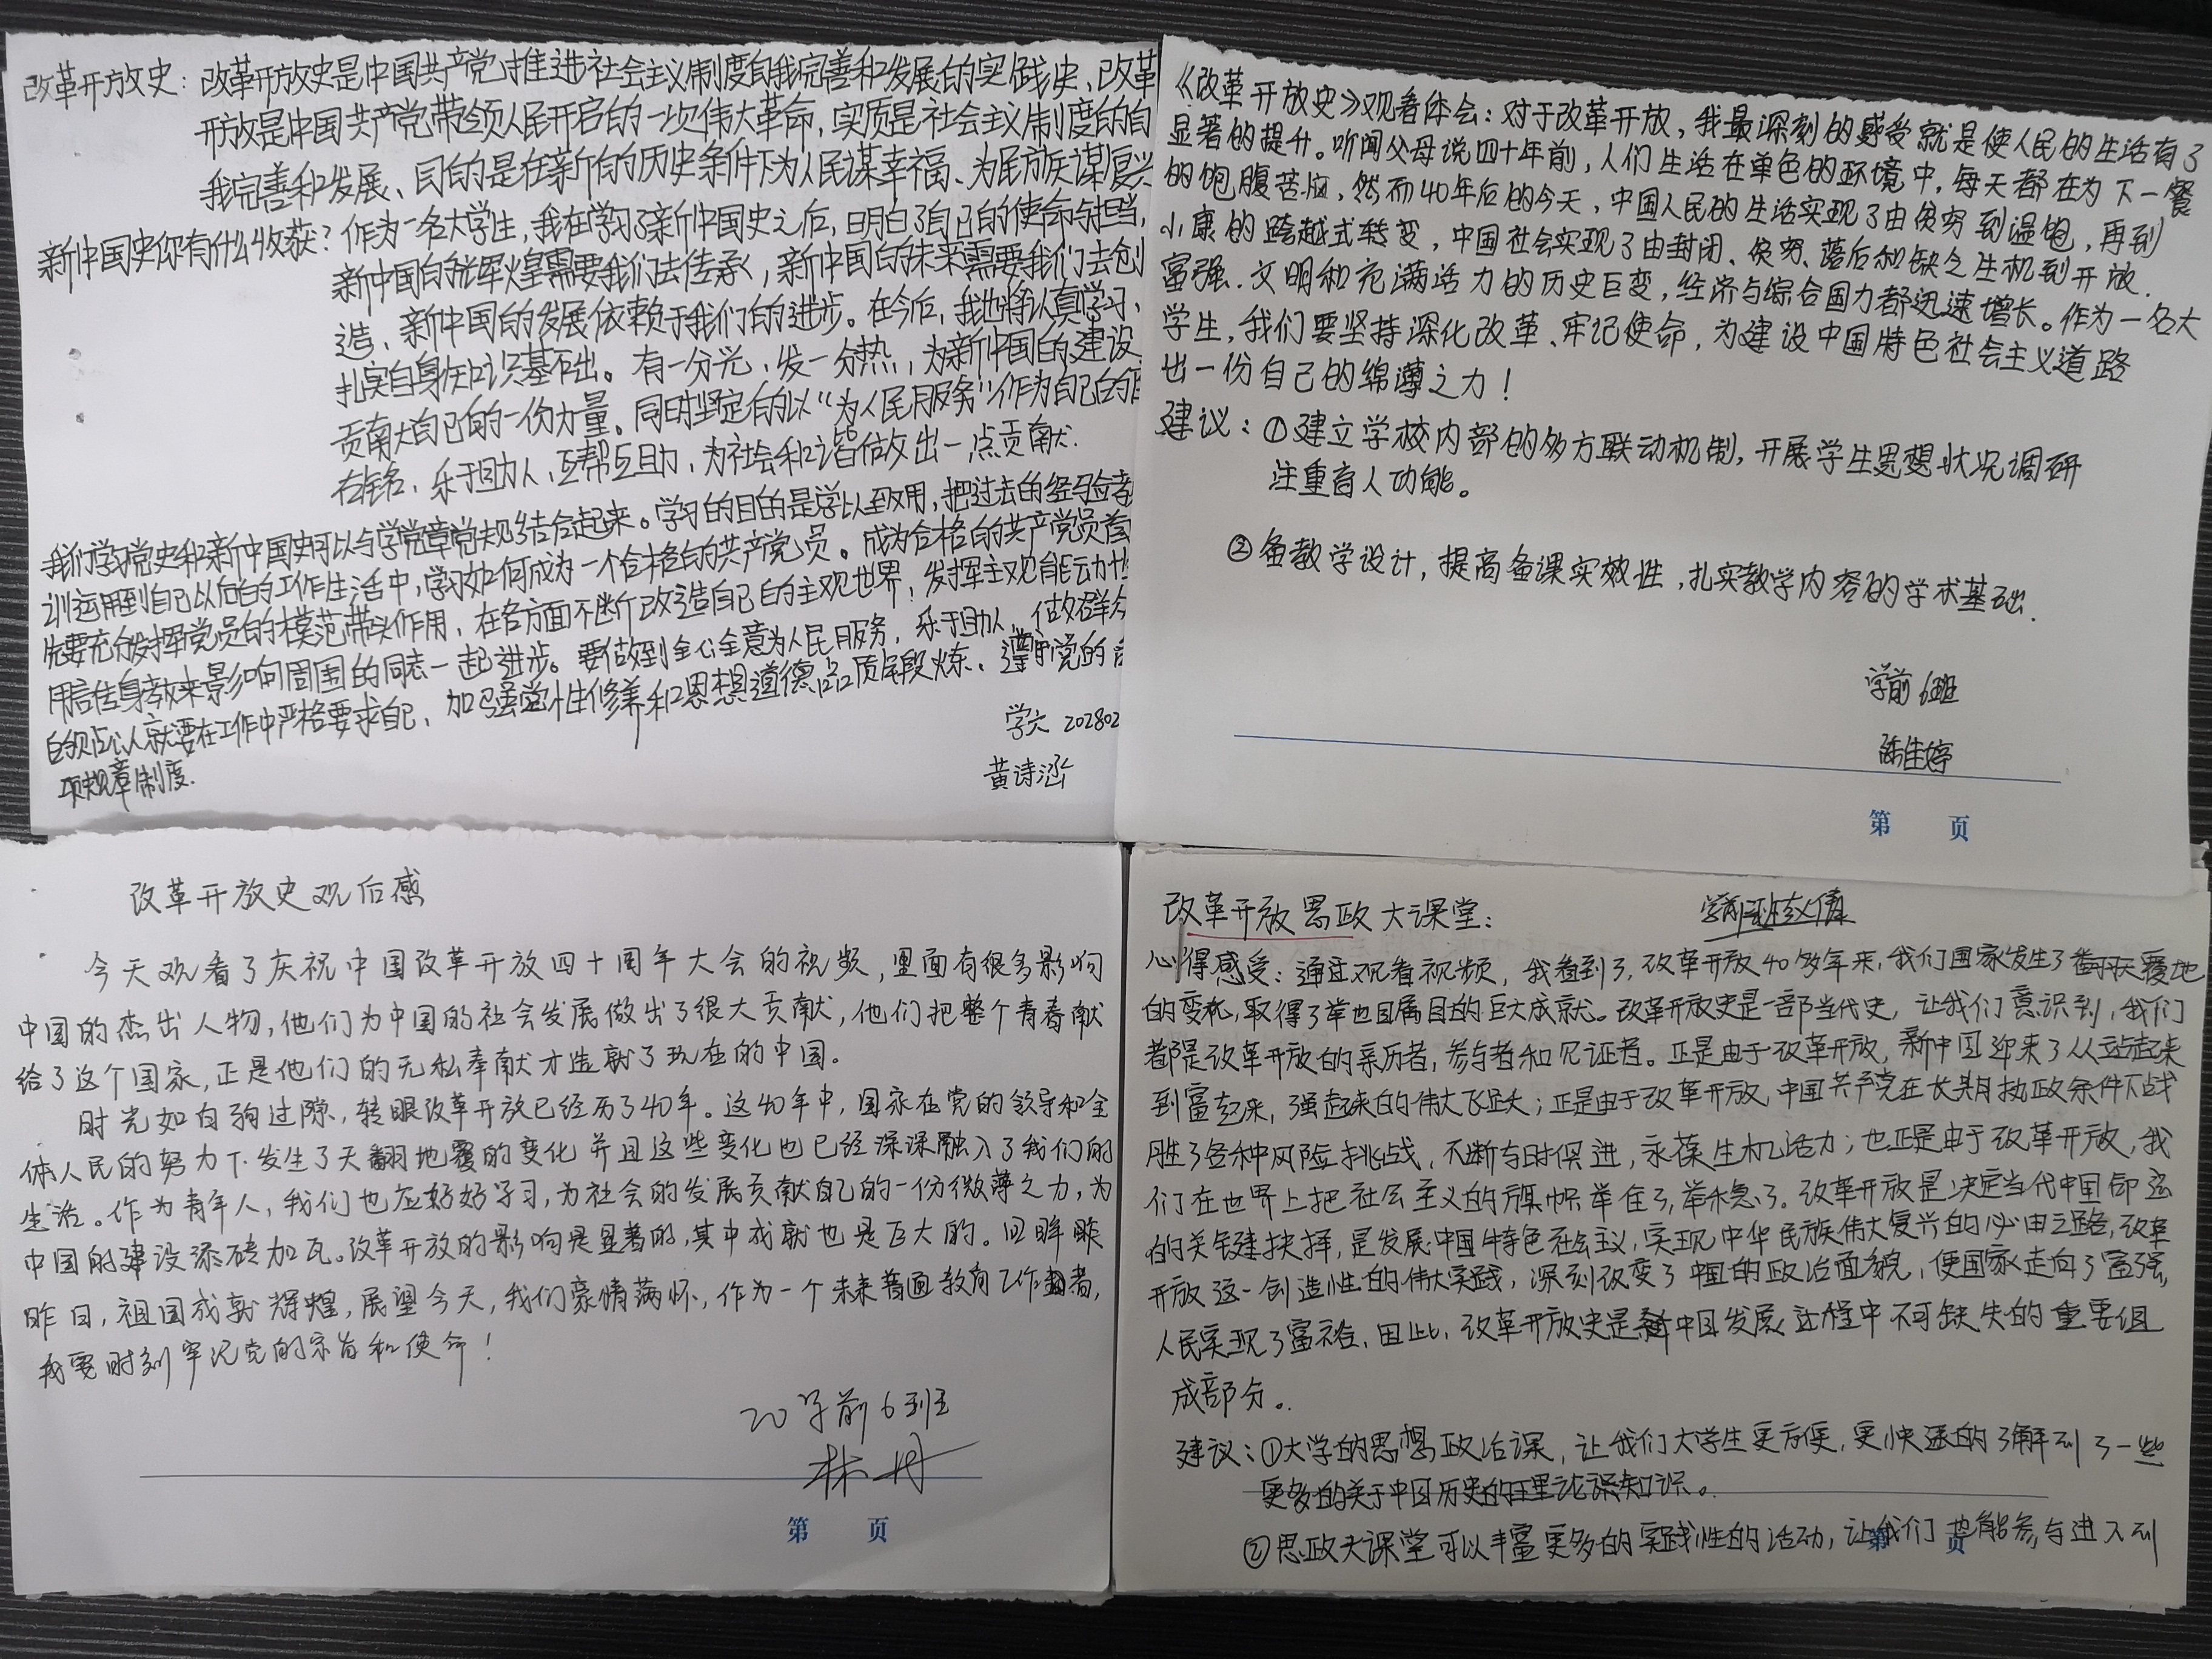 改革开放史：改革开放史是中国共产党推进社会主义制度自我完善和发展的实践史、改革
开放是中国共产党带领人民开启的一次伟大革命，实质是社会主义制度的自
我完善和发展、目的是在新的历史条件下为人民谋幸福、为民族谋复兴
新中国史你有什么收获？作为一名大学生，我在学习了新中国史之后，明白了自己的使命与担当，
新中国的辉煌需要我们去传承，新中国的未来需要我们去创
造、新中国的发展依赖于我们的进步。在今后，我也将认真学习、
扎实自身知识基础。有一分光，发一分热，为新中国的建设
贡献自己的一份力量。同时坚定的以“为人民服务”作为自己的
右铭，乐于助人，互帮互助，为社会和谐做出一点贡献.
我们学习党史和新中国史可以与学党章党规结合起来。学习的目的是学以致用，把过去的经验教
训运用到自己以后的工作生活中，学习如何成为一个合格的共产党员。成为合格的共产党员首
先要充分发挥党员的模范带头作用，在各方面不断改造自己的主观世界，发挥主观能动性
用言传身教来影响周围的同志一起进步。要做到全心全意为人民服务，乐于助人，做群众
的领路人就要在工作中严格要求自己、加强党性修养和思想道德品质锻炼、遵守党的
项规章制度.
学六 202802
黄诗涵
《改革开放史》观看体会：对于改革开放，我最深刻的感受就是使人民的生活有了
显著的提升。听闻父母说四十年前，人们生活在单色的环境中，每天都在为下一餐
的饱腹苦恼，然而40年后的今天，中国人民的生活实现了由贫穷到温饱，再到
小康的跨越式转变，中国社会实现了由封闭、贫穷、落后和缺乏生机到开放.
富强.文明和充满活力的历史巨变，经济与综合国力都迅速增长。作为一名大
学生，我们要坚持深化改革、牢记使命，为建设中国特色社会主义道路
出一份自己的绵薄之力！
建议：①建立学校内部的多方联动机制，开展学生思想状况调研
注重育人功能。
②备教学设计，提高备课实效性，扎实教学内容的学术基础.
学前6班
陆佳婷
第 页
改革开放史观后感
今天观看了庆祝中国改革开放四十周年大会的视频，里面有很多影响
中国的杰出人物，他们为中国的社会发展做出了很大贡献，他们把整个青春献
给了这个国家，正是他们的无私奉献才造就了现在的中国。
时光如白驹过隙，转眼改革开放已经历了40年。这40年中，国家在党的领导和全
体人民的努力下发生了天翻地覆的变化并且这些变化也已经深深融入了我们的
生活。作为青年人，我们也应好好学习，为社会的发展贡献自己的一份微薄之力，为
中国的建设添砖加瓦。改革开放的影响是显著的，其中成就也是巨大的。回眸昨
昨日，祖国成就辉煌，展望今天，我们豪情满怀，作为一个未来普通教育工作者，
我要时刻牢记党的宗旨和使命！
20学前6班
林丹
第 页
改革开放思政大课堂：
心得感受：通过观看视频，我看到了，改革开放40多年来，我们国家发生了翻天覆地
的变化，取得了举世瞩目的巨大成就。改革开放史是一部当代史，让我们意识到，我们
都是改革开放的亲历者，参与者和见证者。正是由于改革开放，新中国迎来了从站起来
到富起来，强起来的伟大飞跃；正是由于改革开放，中国共产党在长期执政条件下战
胜了各种风险挑战，不断与时俱进，永葆生机活力；也正是由于改革开放，我
们在世界上把社会主义的旗帜举住了，举稳了。改革开放是决定当代中国命运
的关键抉择，是发展中国特色社会主义，实现中华民族伟大复兴的必由之路，改革
开放这一创造性的伟大实践，深刻改变了中国的政治面貌，使国家走向了富强，
人民实现了富裕，因此，改革开放史是新中国发展过程中不可缺失的重要组
成部分。
建议：①大学的思想政治课，让我们大学生更方便，更快速的了解到了一些
更多的关于中国历史的理论知识。
②思政大课堂可以丰富更多的实践性的活动，让我们也能参与进入到
第 页